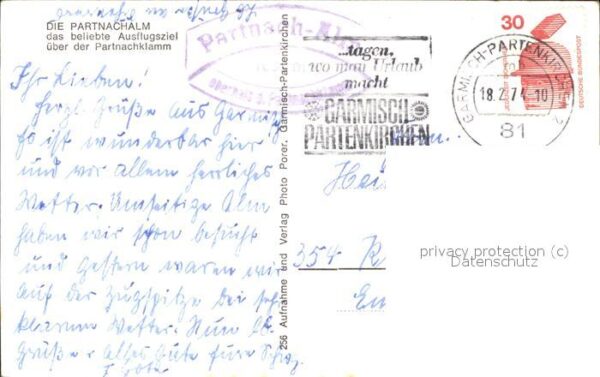 DIE PARTNACHALM
das beliebte Ausflugsziel
über der Partnachklamm
Ihr Lieben!
Herzl. Grüße aus Garmisch
Es ist wunderbar hier
und vor allem herrliches
Wetter. Umseitige Alm
haben wir schon besucht
und gestern waren wir
auf der Zugspitze bei sehr
klarem Wetter. Nun lb.
Grüße u. alles Gute
256 Aufnahme und Verlag Photo Porer, Garmisch-Partenkirchen
Partnach-Al
...tagen,
wo man Urlaub
macht
GARMISCH
PARTENKIRCHEN
GARMISCH-PARTENKIRCHEN 2
18.2.74-10
81
30
DEUTSCHE BUNDESPOST
354 K
privacy protection (c)
Datenschutz